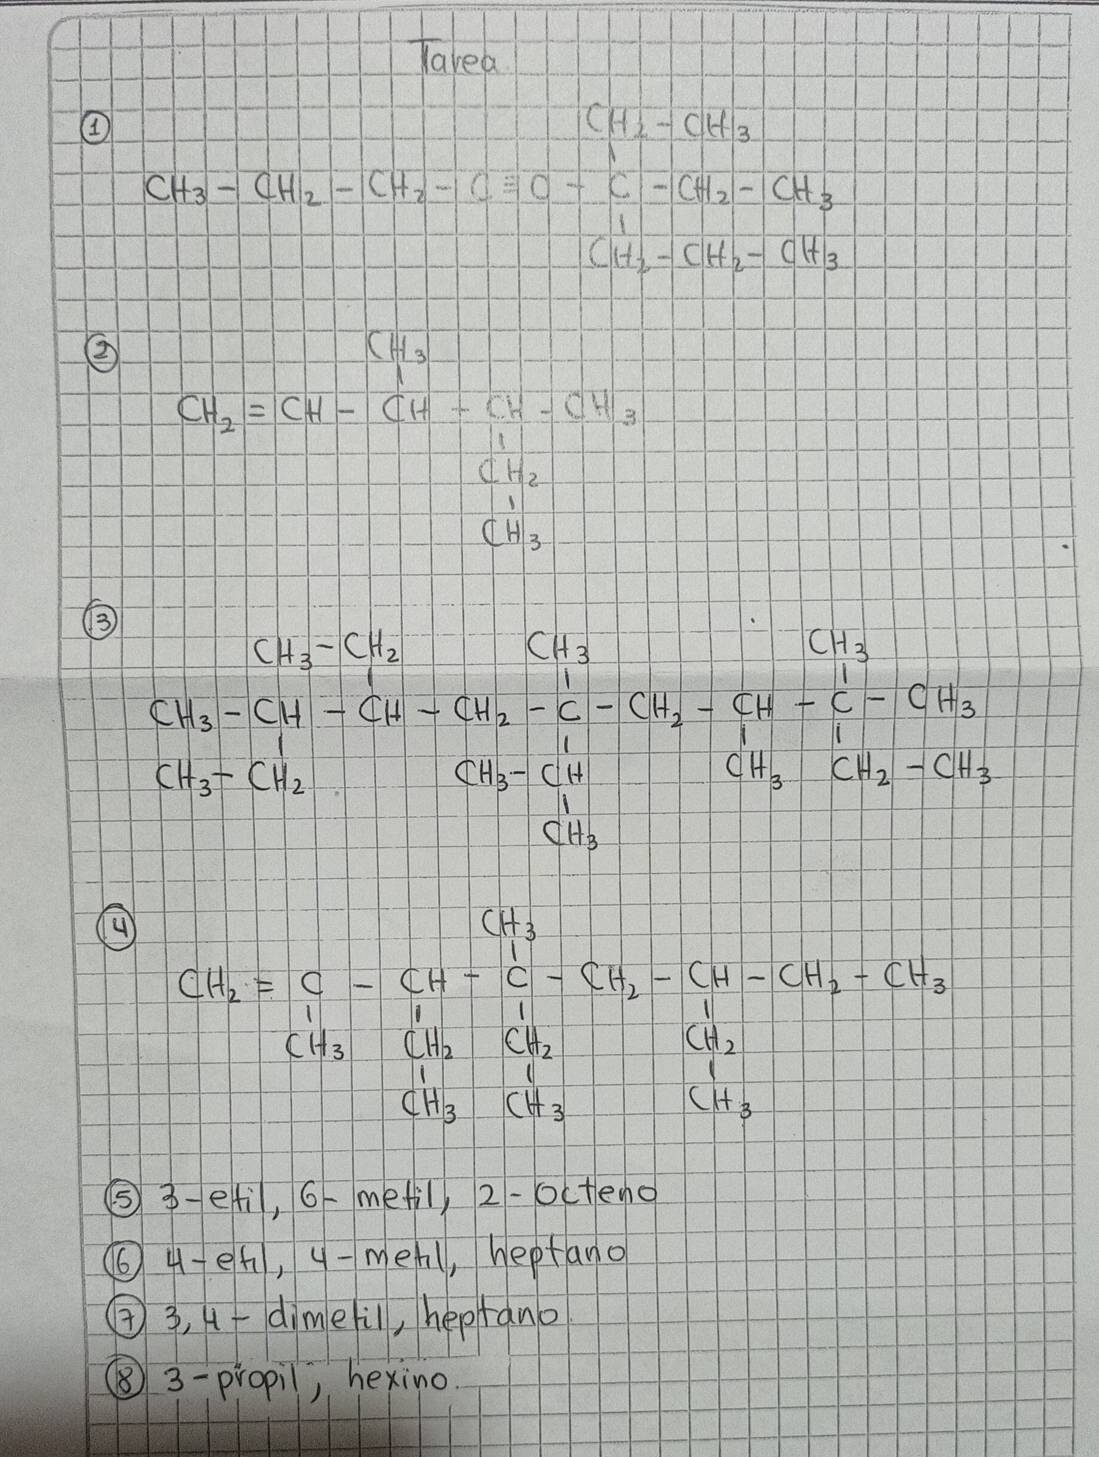 Tarea
① CH2 - CH3
CH3 - CH2 - CH2 - C ≡ C - C - CH2 - CH3
CH2 - CH2 - CH3
② CH3
CH2 = CH - CH - CH - CH3
CH2
CH3
③
CH3 - CH2 CH3 CH3
CH3 - CH - CH - CH2 - C - CH2 - CH - C - CH3
CH3 - CH2 CH3 - CH CH3 CH2 - CH3
CH3
④ CH3
CH2 = C - CH - C - CH2 - CH - CH2 - CH3
CH3 CH2 CH2 CH2
CH3 CH3 CH3
⑤ 3-etil, 6-metil, 2-octeno
⑥ 4-etil, 4-metil, heptano
⑦ 3,4-dimetil, heptano.
⑧ 3-propil, hexino.